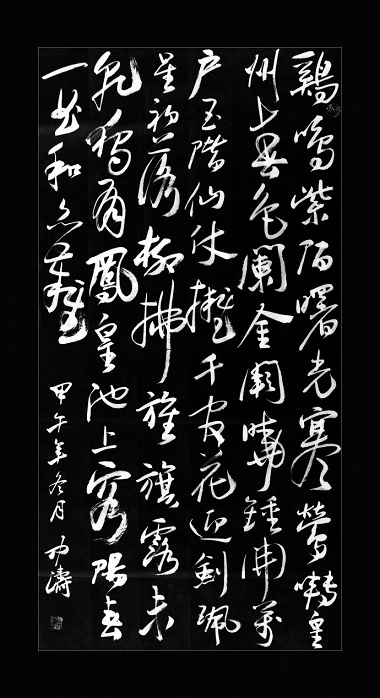 鷄鳴紫陌曙光寒鶯囀皇
州上春色闌金闕曉鐘開萬
户玉階仙仗擁千官花迎劍珮
星初落柳拂旌旗露未
乾獨有鳳皇池上客陽春
一曲和皆難
甲午年冬月 濤